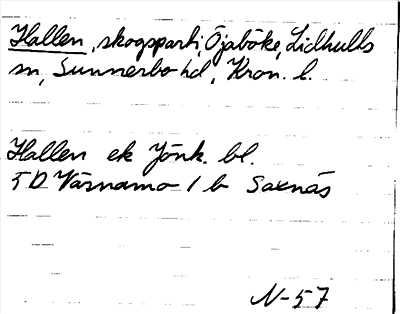 Hallen, skogsparti, Öjaböke, Lidhults
sn, Sunnerbo hd, Kron. l.
Hallen ek Jönk. bl.
5 D Värnamo 1 b Saxnäs
N-57